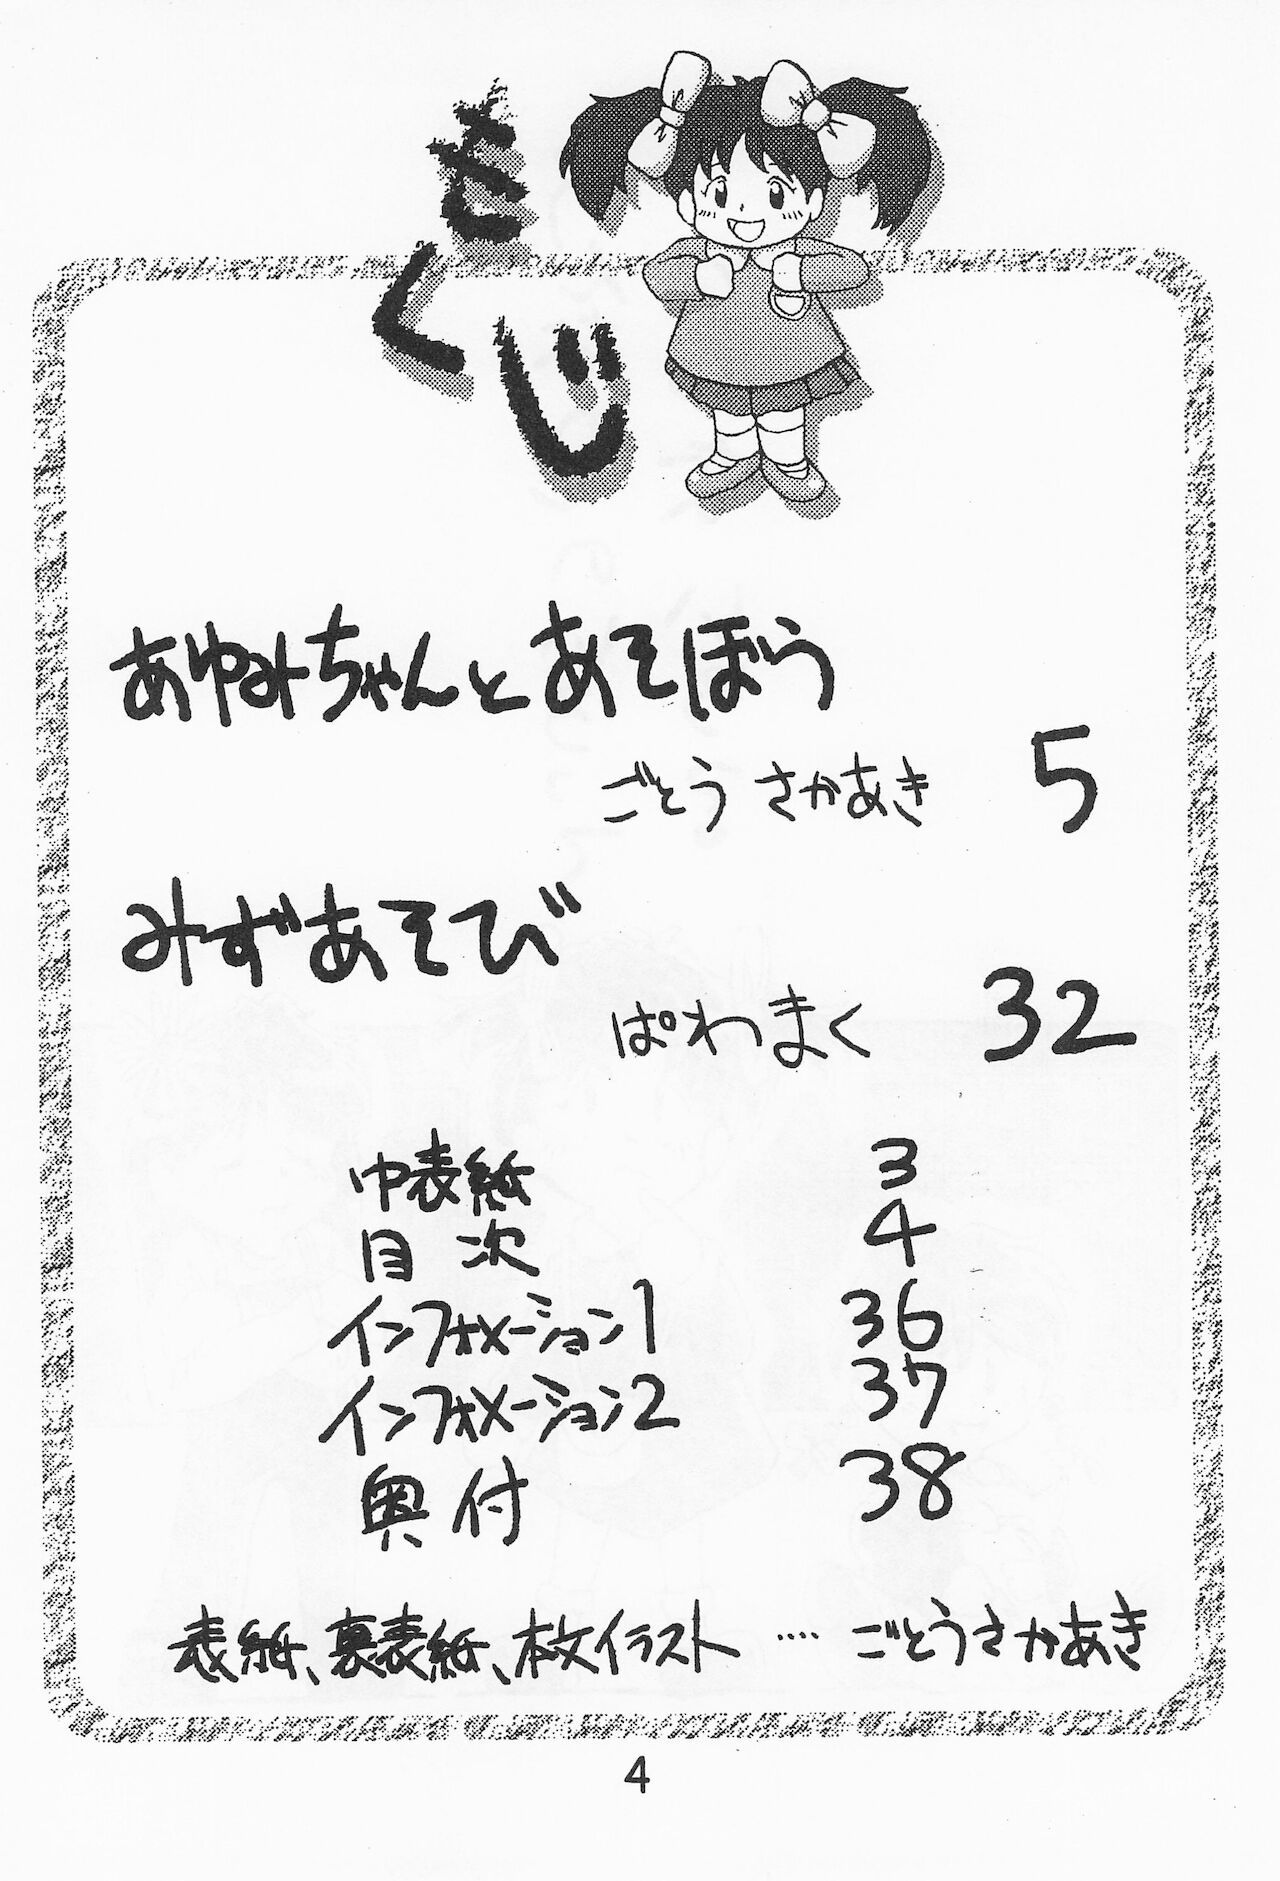 もくじ
あゆみちゃんとあそぼう
ごとうさかあき 5
みずあそび
ぱわまく 32
中表紙 3
目次 4
インフォメーション1 36
インフォメーション2 37
奥付 38
表紙、裏表紙、本文イラスト ‥‥ ごとうさかあき
4